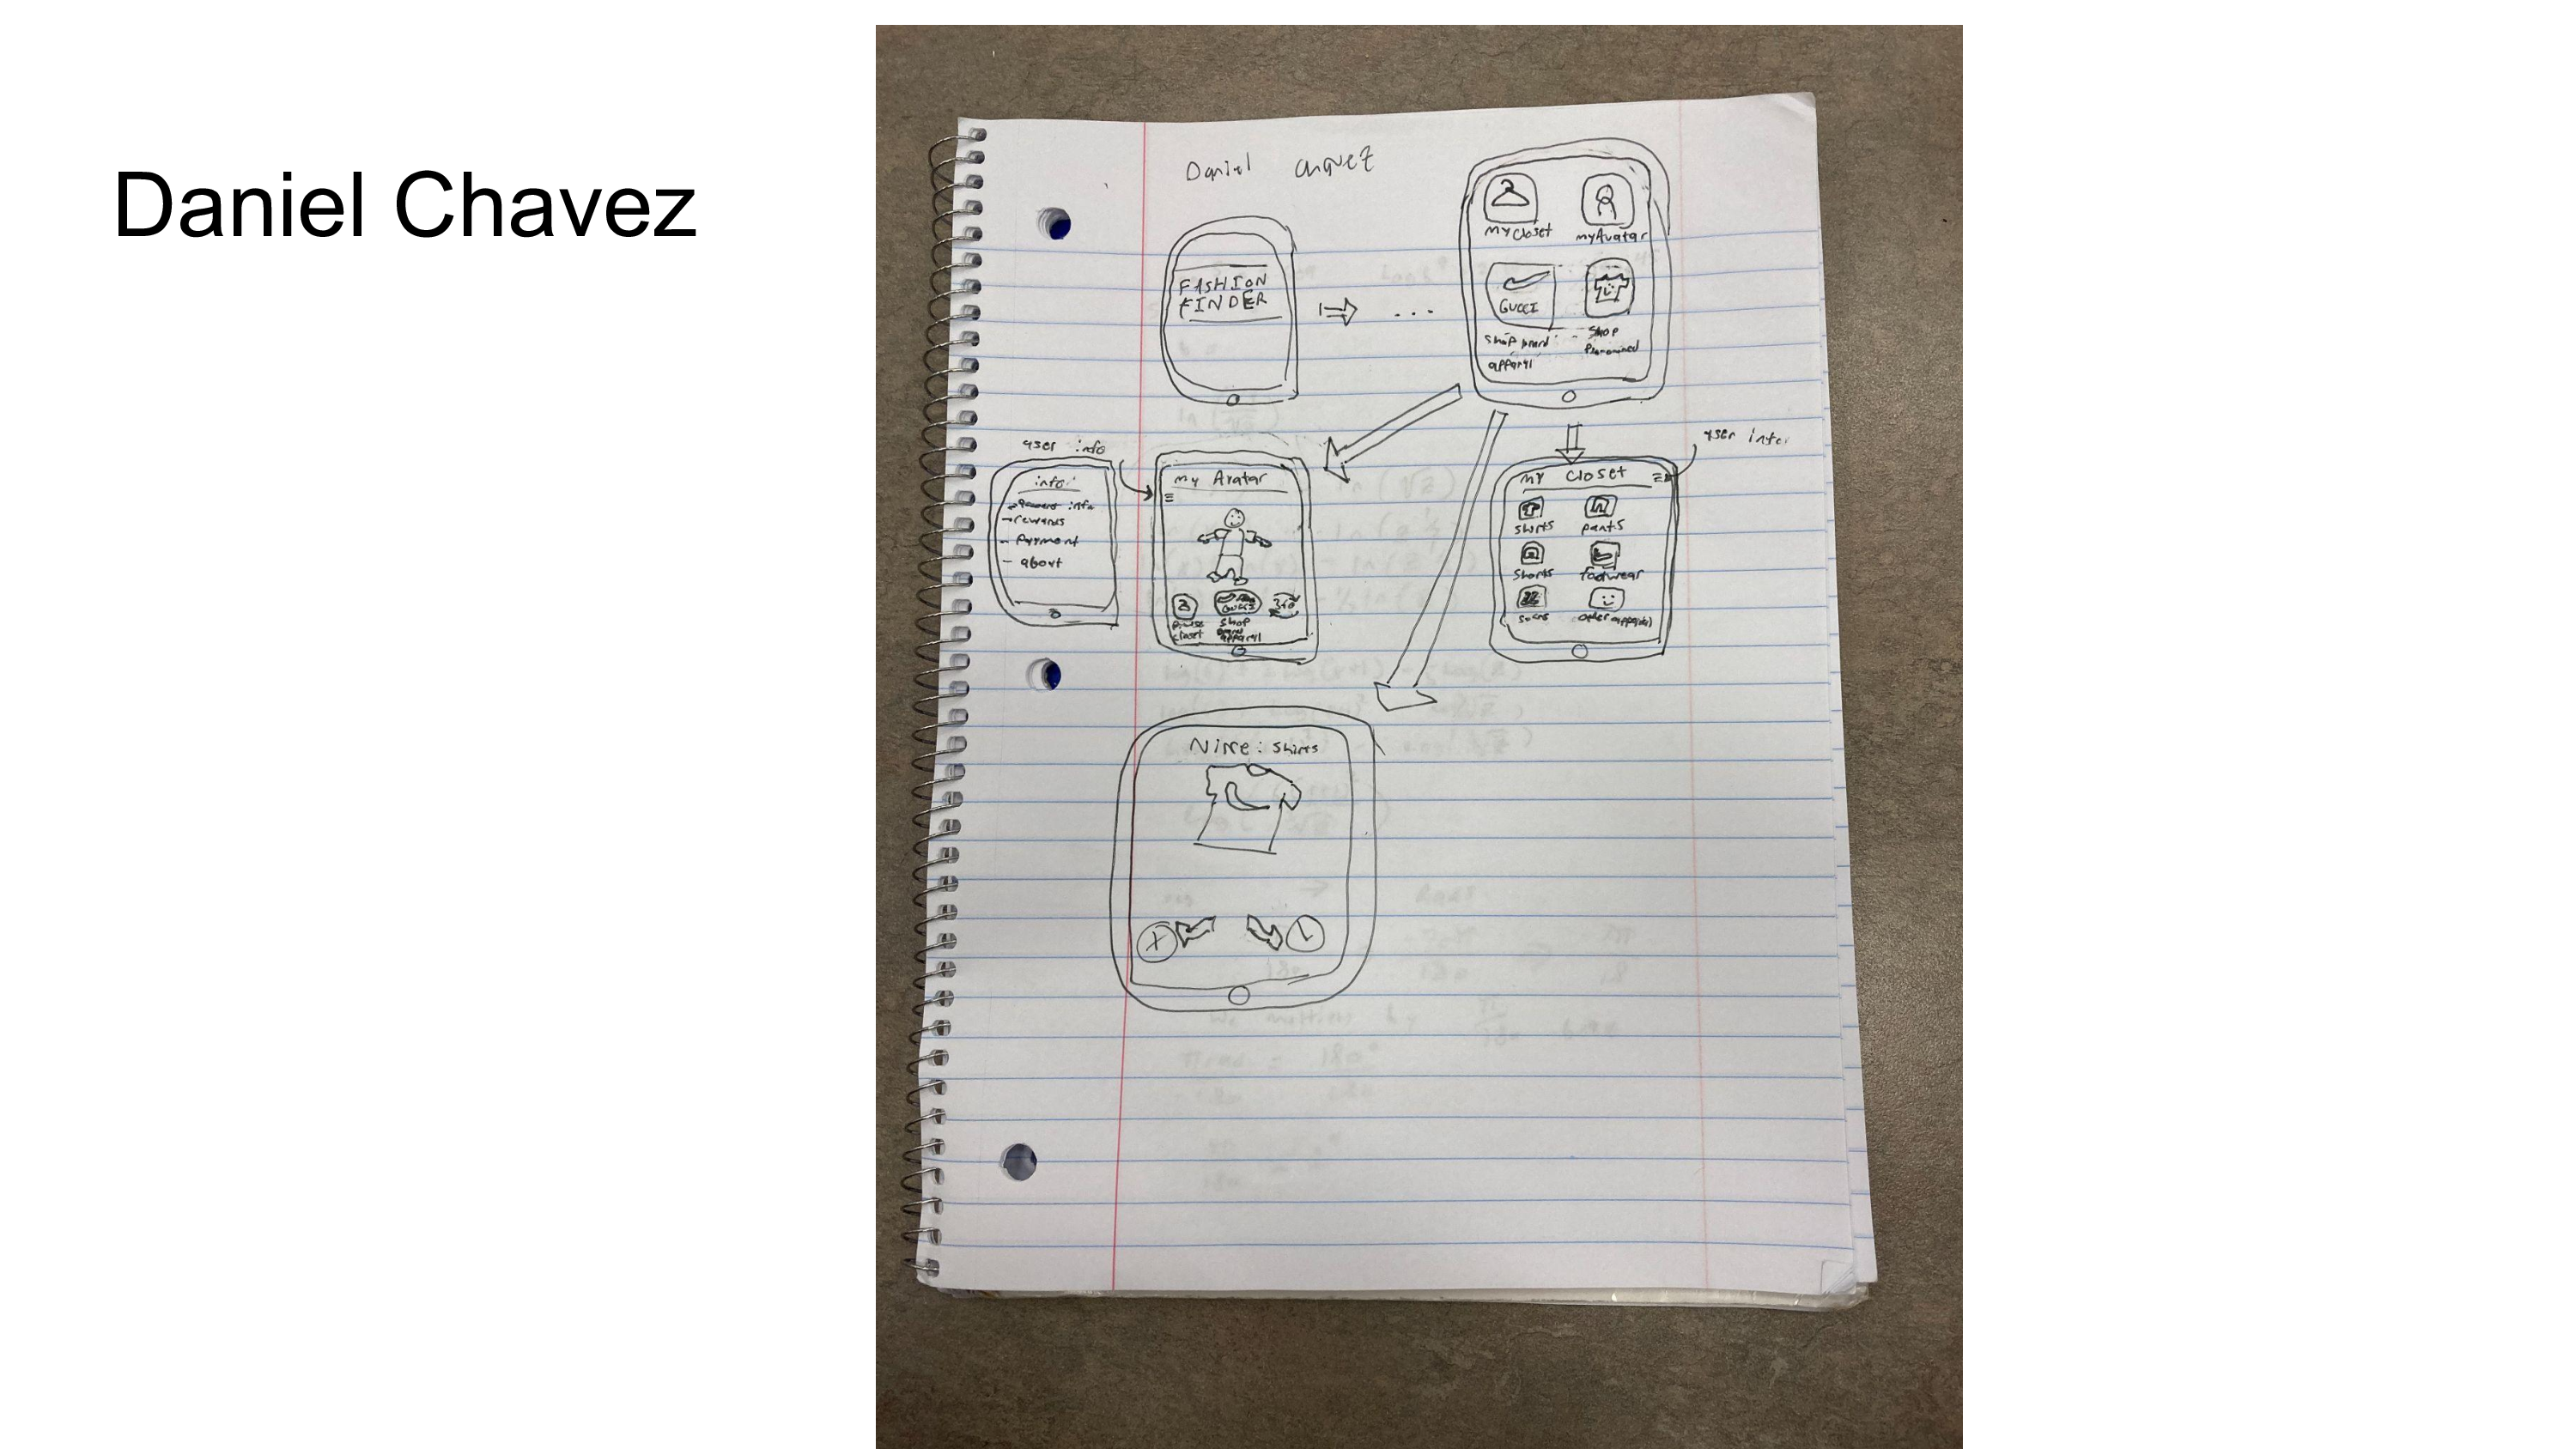 Daniel Chavez
Daniel Chavez
FASHION
FINDER
...
my closet
myAvatar
GUCCI
shop
apparyl
shop
user info
info
info
- rewards
- payment
- about
my Avatar
GUCCI
360
closet
shop
apparyl
user info
my closet
shirts
pants
shorts
footwear
socks
other
Nike: shirts